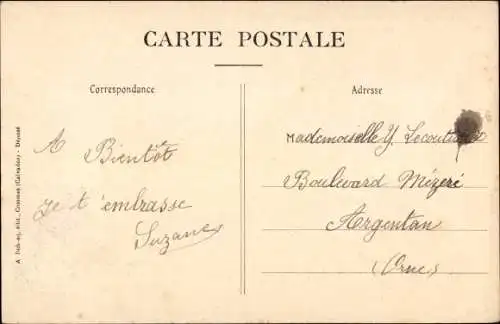 CARTE POSTALE
Correspondance
A
Bientôt
je t'embrasse
Suzane
Adresse
Mademoiselle Y Lecouturier
Boulevard Mézeré
Argentan
(Orne)
édit., Commes (Calvados) - Déposé